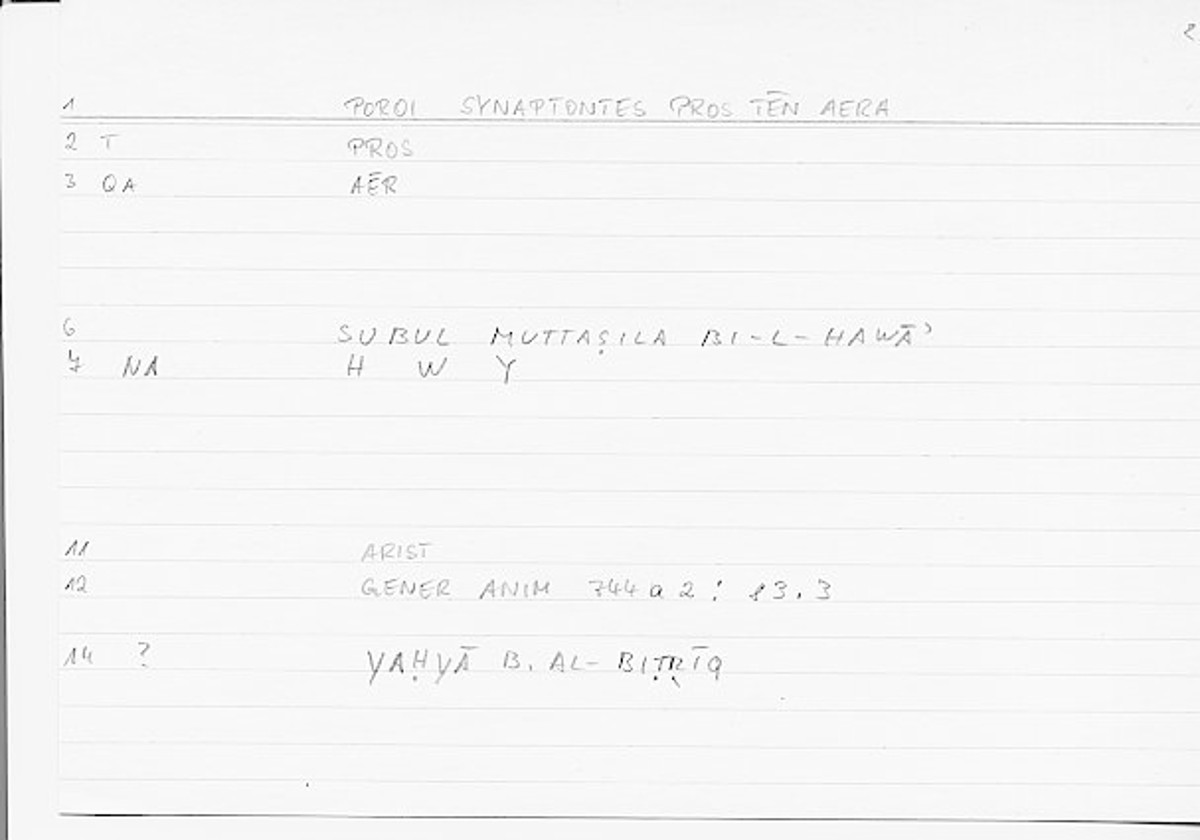 2
1 POROI SYNAPTONTES PROS TĒN AERA
2 T PROS
3 QA AĒR
6 SUBUL MUTTAṢILA BI-L-HAWĀʾ
7 NA H W Y
11 ARIST
12 GENER ANIM 744a2:
14 ? YAḤYĀ B. AL-BIṬRĪQ